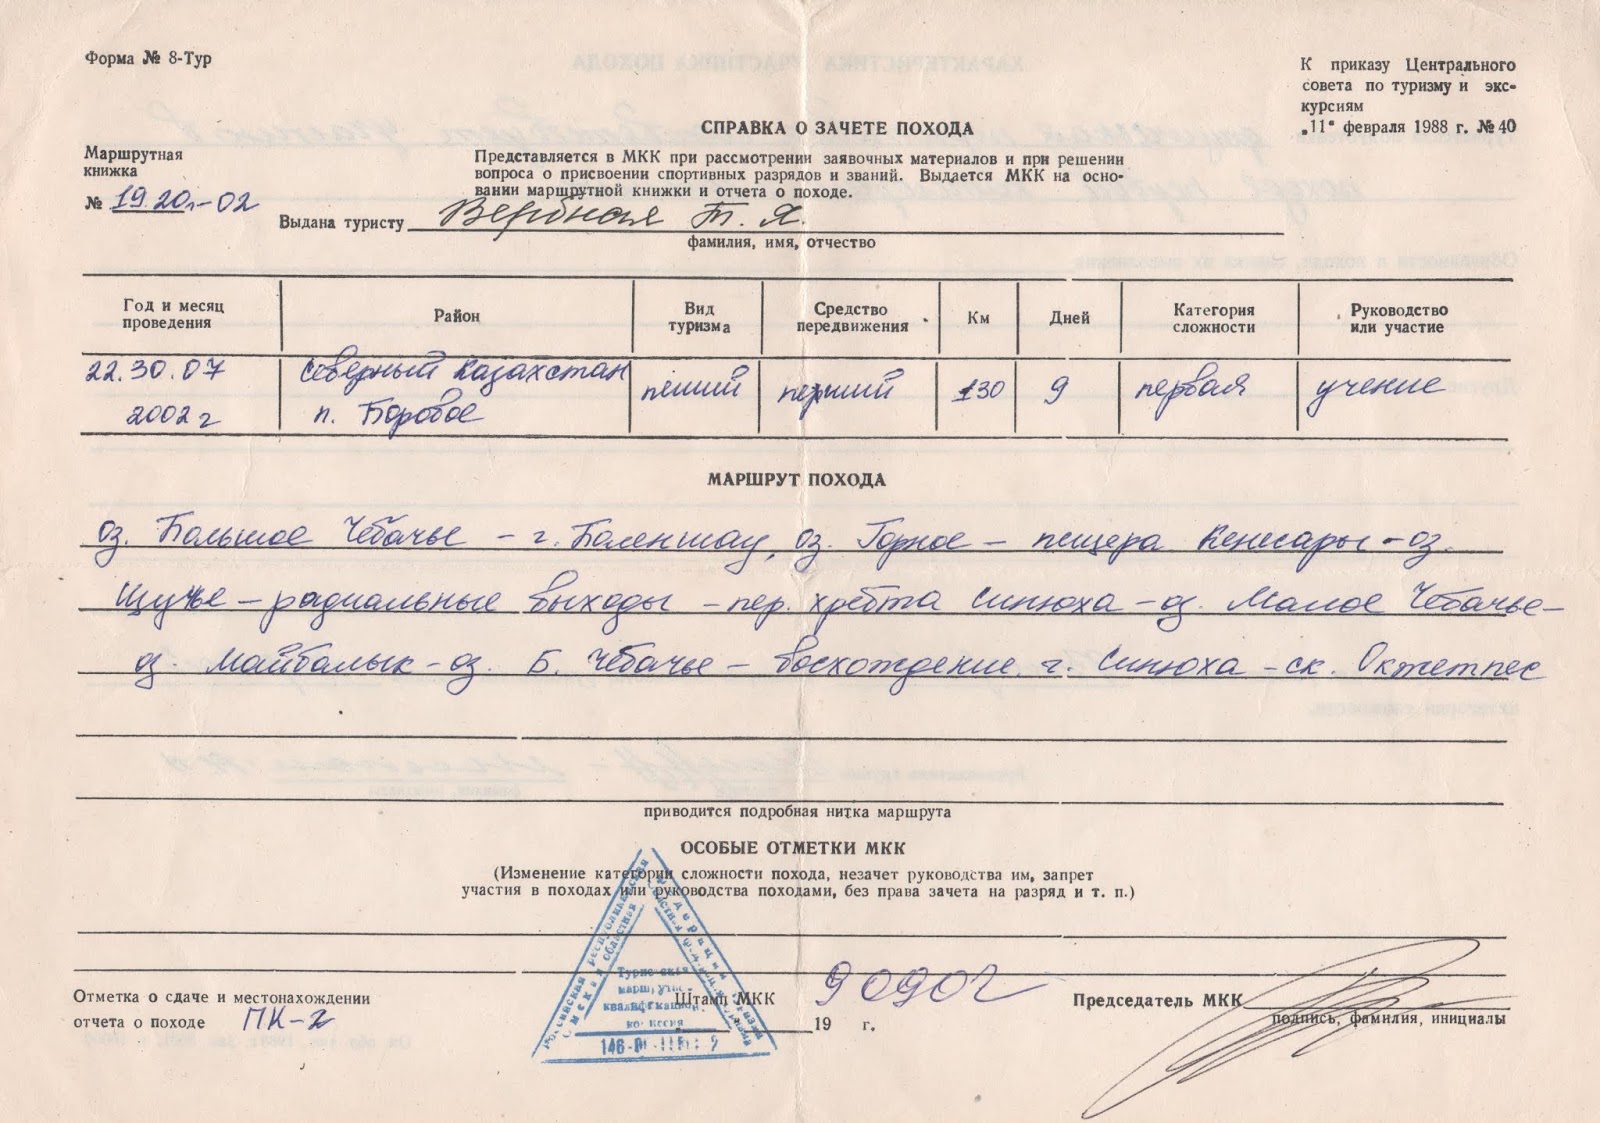 Форма № 8-Тур
К приказу Центрального
совета по туризму и экс-
курсиям
„11" февраля 1988 г. № 40
СПРАВКА О ЗАЧЕТЕ ПОХОДА
Маршрутная
книжка
№ 19.20л-02
Представляется в МКК при рассмотрении заявочных материалов и при решении
вопроса о присвоении спортивных разрядов и званий. Выдается МКК на осно-
вании маршрутной книжки и отчета о походе.
Выдана туристу Вербная Т. Я.
фамилия, имя, отчество
Год и месяц проведения Район Вид туризма Средство передвижения Км Дней Категория сложности Руководство или участие
22.30.07 Северный Казахстан пеший 130 9 первая
2002 г п. Боровое
МАРШРУТ ПОХОДА
оз. Большое Чебачье – г. оз. Горное – пещера Кенесары – оз.
Щучье – радиальные выходы – пер. хребта Синюха – оз. Малое Чебачье –
оз. Майбалык – оз. Б. Чебачье – восхождение г. Синюха – ск. Окжетпес
приводится подробная нитка маршрута
ОСОБЫЕ ОТМЕТКИ МКК
(Изменение категории сложности похода, незачет руководства им, запрет
участия в походах или руководства походами, без права зачета на разряд и т. п.)
Отметка о сдаче и местонахождении
отчета о походе ПК-2
Российская республиканская
Омская областная
маршрутно-
квалификацион.
Штамп МКК
19 г.
Председатель МКК
подпись, фамилия, инициалы